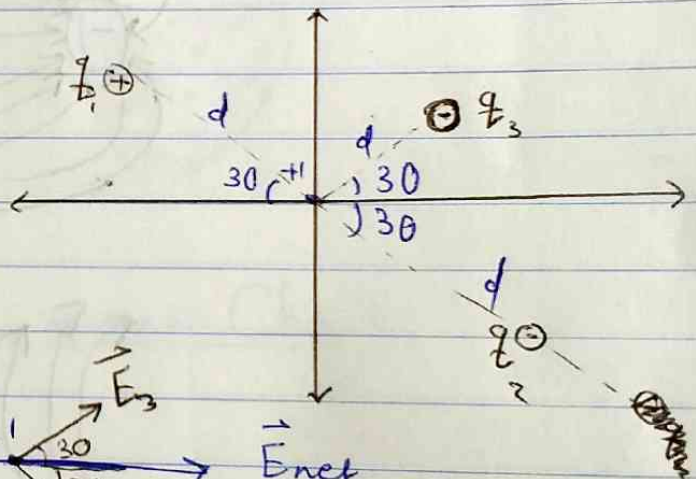 q₁ ⊕
d
d
⊖ q₃
30
+1
30
30
d
q ⊖
2
E₃
1
30
Enet